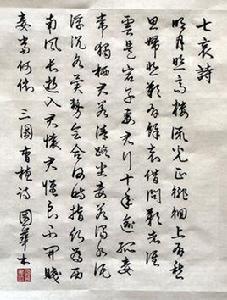 七哀詩
明月照高樓流光正徘徊上有愁
思婦悲歎有餘哀借問歎者誰
雲是宕子妻君行十年逾孤妾
常獨棲君若清路塵妾若濁水泥
浮沉各異勢會合何時諧願為西
南風長逝入君懷君懷良不開賤
妾當何依 三國曹植詩 國華